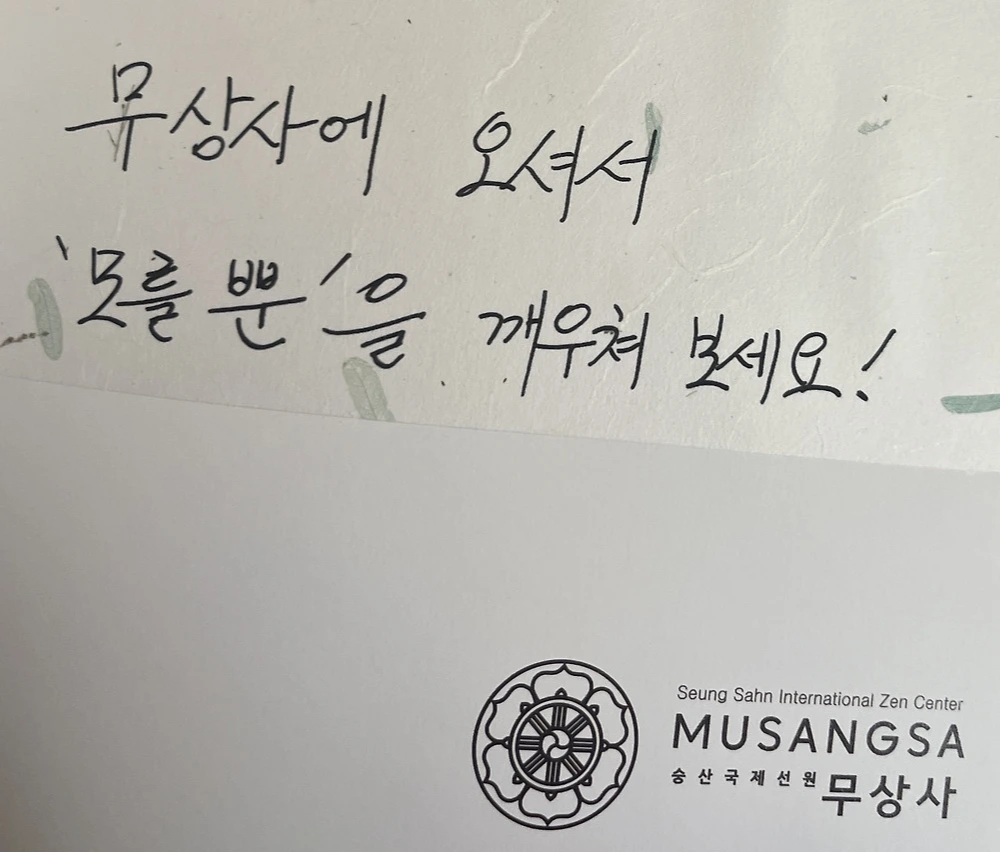 무상사에 오셔서
'모를 뿐'을 깨우쳐 보세요!
Seung Sahn International Zen Center
MUSANGSA
숭산국제선원 무상사